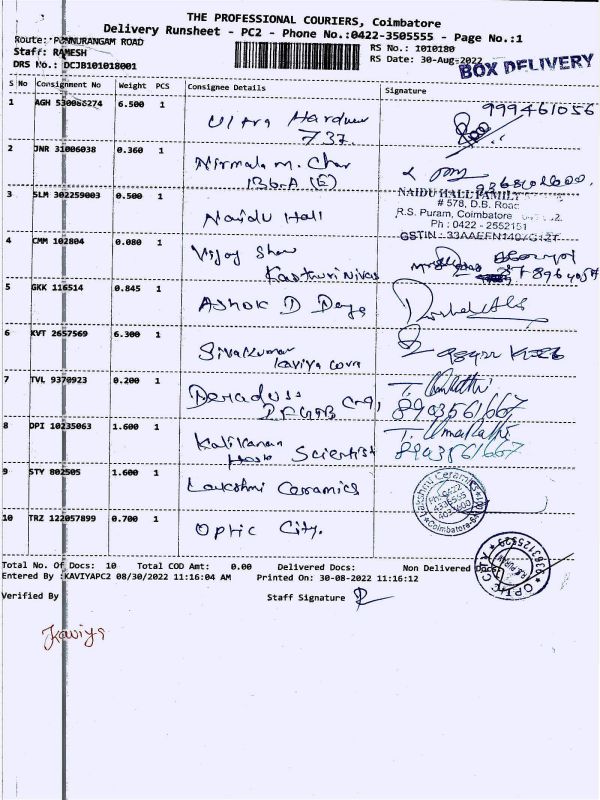 THE PROFESSIONAL COURIERS, Coimbatore
Delivery Runsheet - PC2 - Phone No.:0422-3505555 - Page No.:1
Route: PONNURANGAM ROAD
RS No.: 1010180
Staff: RAMESH
RS Date: 30-Aug-2022
DRS No.: DCJB101018001
BOX DELIVERY
S No Consignment No Weight PCS Consignee Details Signature
1 AGH 530066274 6.500 1 Ultra Hardware 737
999461056
2 JNR 31006038 0.360 1 Nirmala m. Char
136-A (E)
3 SLM 302259003 0.500 1 Naidu Hall
NAIDU HALL FAMILY
# 578, D.B. Road
R.S. Puram, Coimbatore
Ph : 0422 - 2552151
GSTIN : 33AAEFN1407G1ZT
4 CMM 102804 0.080 1 Vijay Shaw
Kasthuri Nivas
5 GKK 116514 0.845 1 Ashok D
6 KVT 2657569 6.300 1 Sivakumar
Kaviya
7 TVL 9370923 0.200 1
8903561667
8 DPI 10235063 1.600 1 Scientist
T. Umarathi
8903561667
9 STY 802505 1.600 1 Lakshmi Ceramics
Lakshmi Ceramics
Coimbatore
10 TRZ 122057899 0.700 1 Optic City.
OPTIC CITY
Total No. Of Docs: 10 Total COD Amt: 0.00 Delivered Docs: Non Delivered Docs:
Entered By :KAVIYAPC2 08/30/2022 11:16:04 AM Printed On: 30-08-2022 11:16:12
Verified By Staff Signature
Kaviya